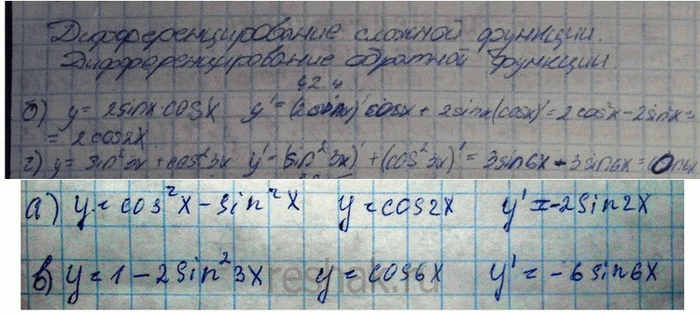 Дифференцирование сложной функции.
Дифференцирование обратной функции.
42.4
б) y = 2sinx·cosx y' = (2sinx)' cosx + 2sinx(cosx)' = 2cos²x - 2sin²x =
= 2cos2x
г) y = sin²3x + cos²3x y' = (sin²3x)' + (cos²3x)' = 3sin6x - 3sin6x = 0
а) y = cos²x - sin²x y = cos2x y' = -2sin2x
в) y = 1 - 2sin²3x y = cos6x y' = -6sin6x
reshak.ru